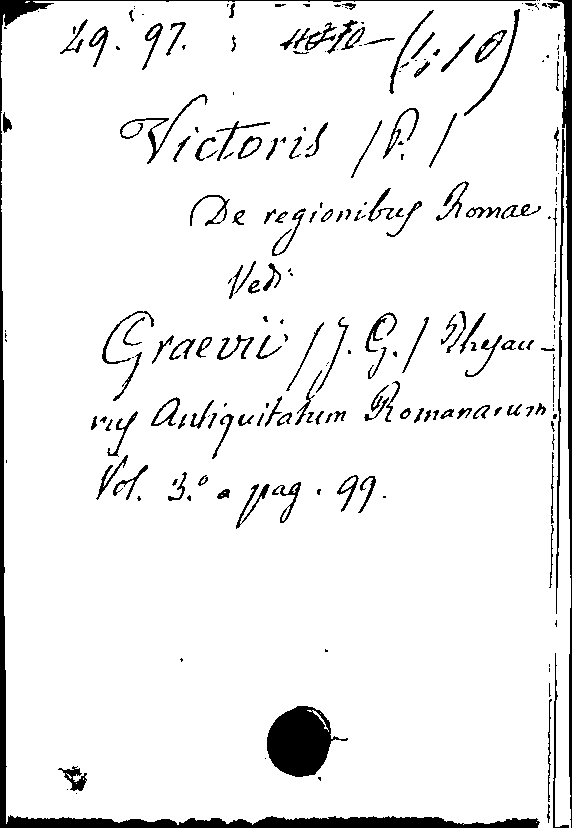 29. 97. (4;10)
Victoris /P./
De regionibus Romae.
Vedi
Graevii /J. G./ Thesau-
rus Antiquitatum Romanarum.
Vol. 3.º a pag. 99.